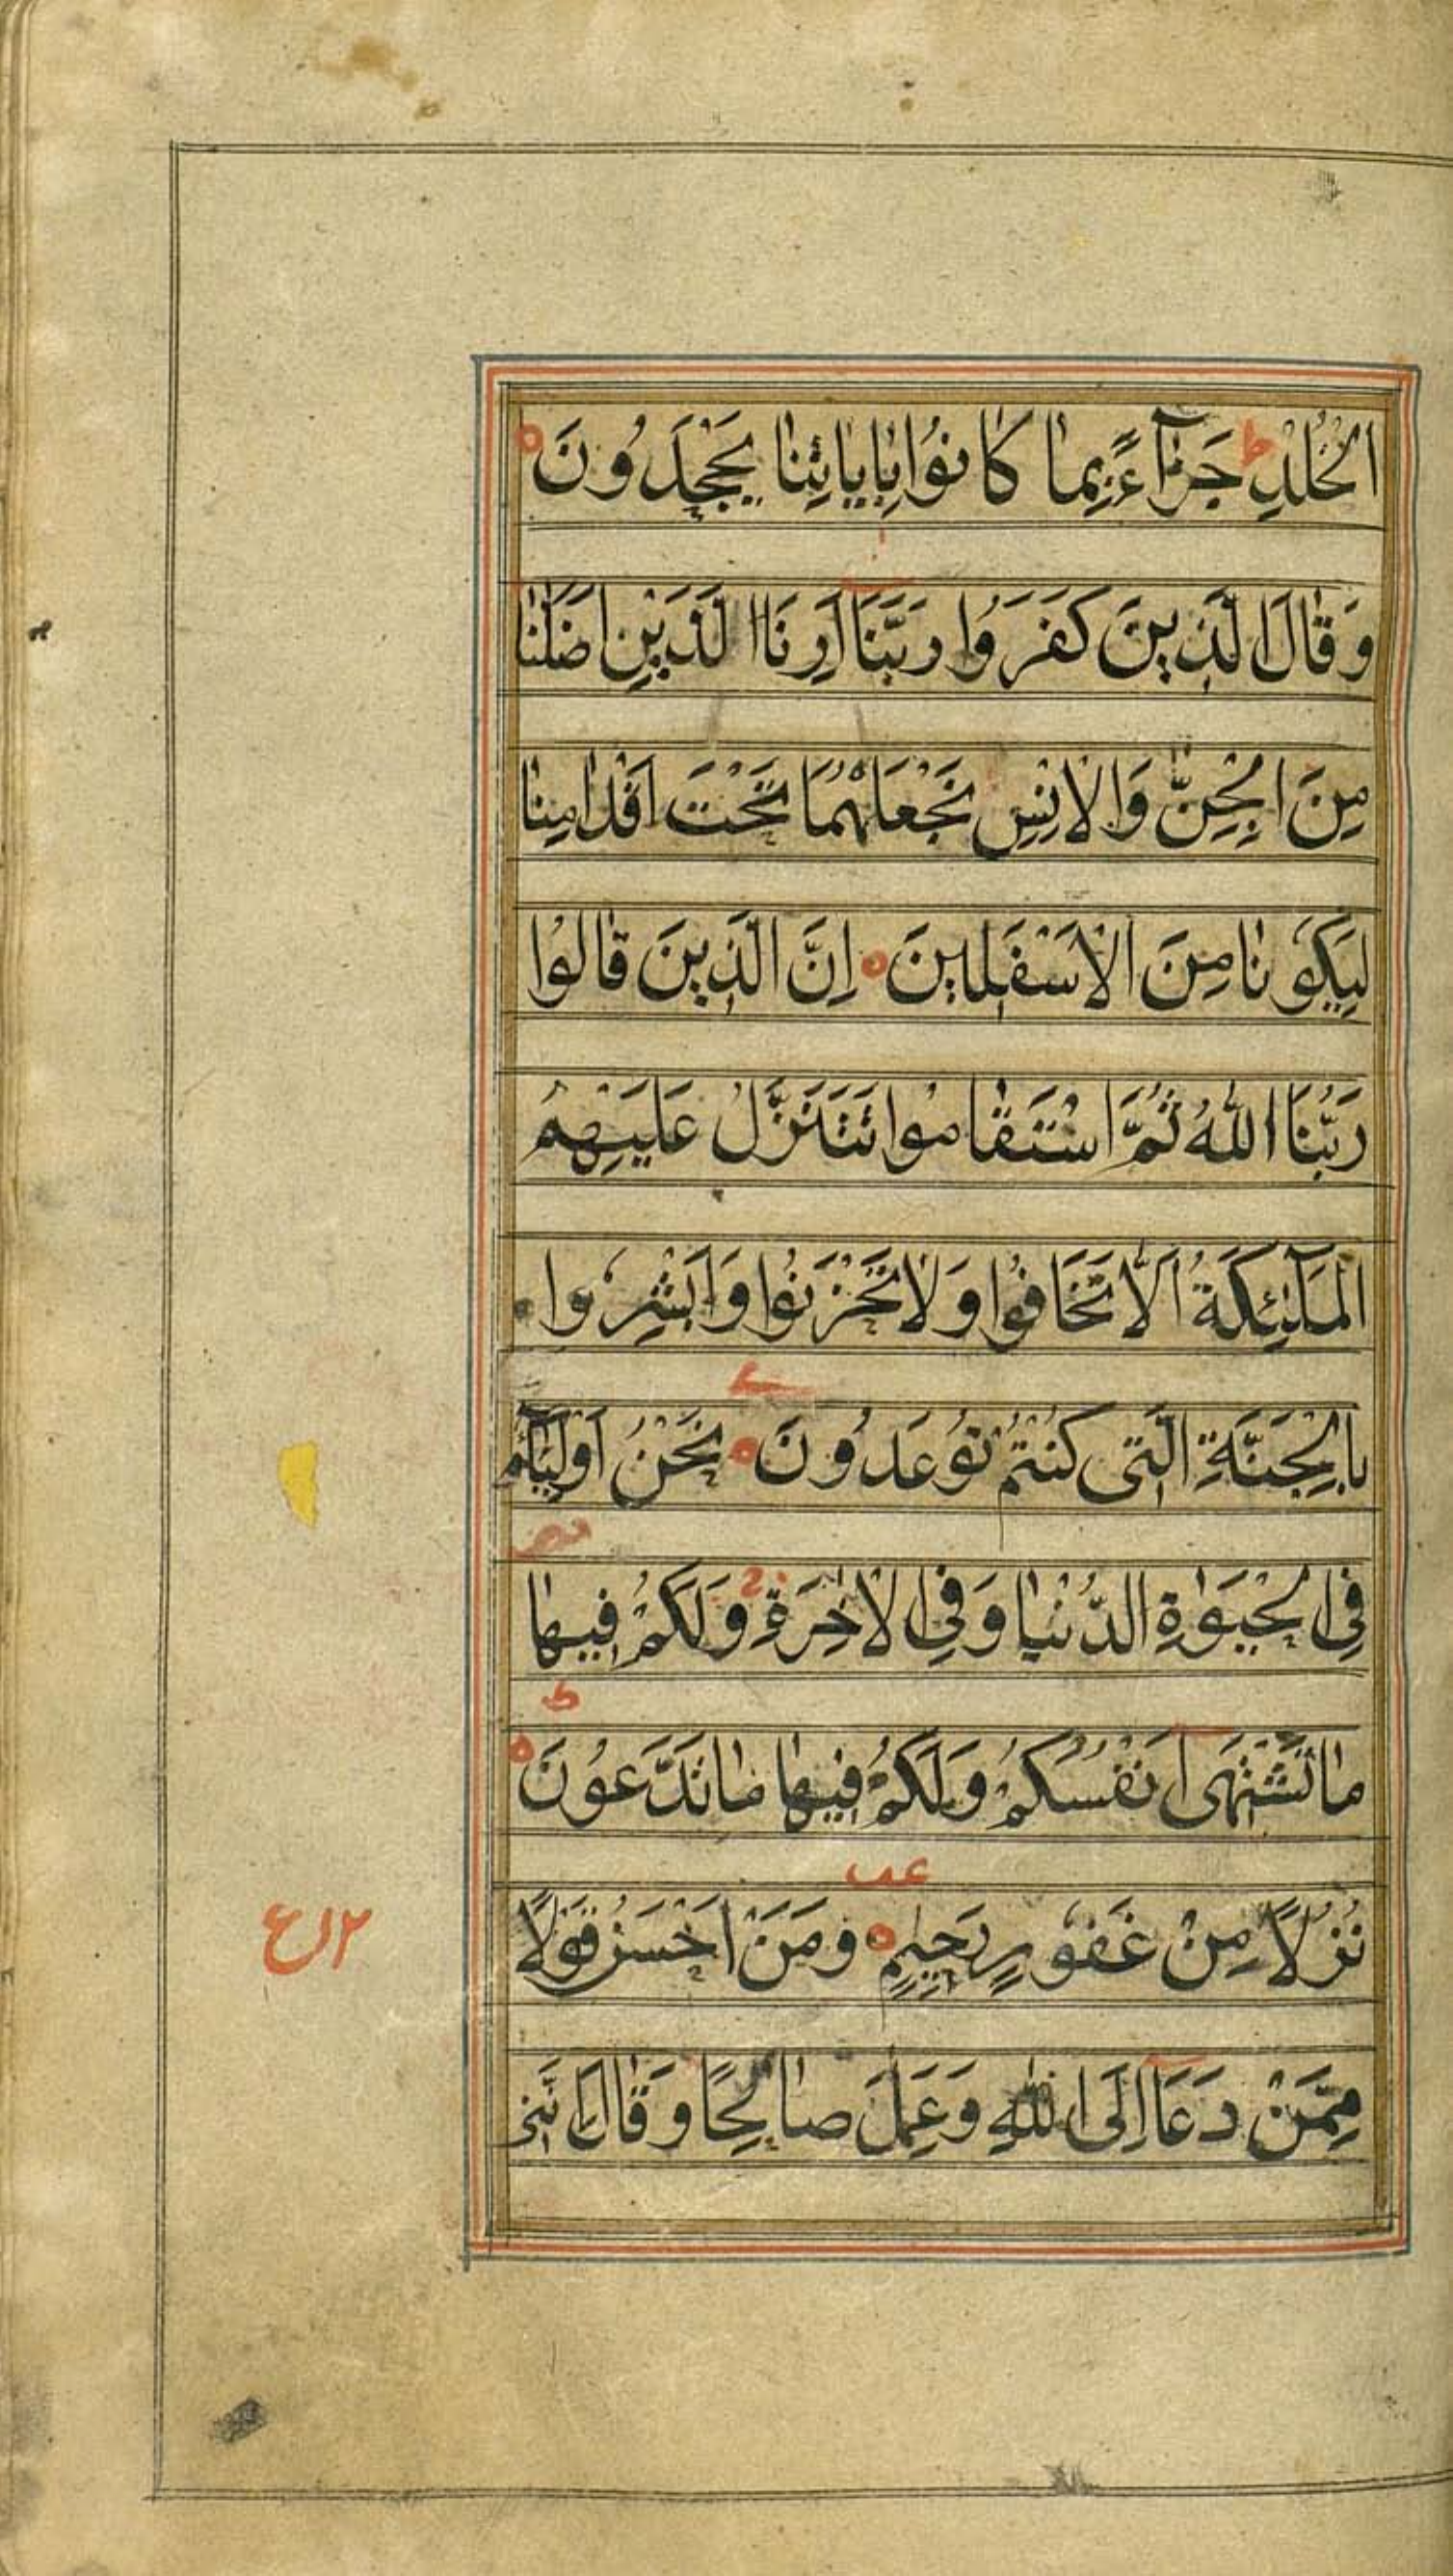 الْخُلْدِ ط جَزَآءً بِمَا كَانُوا بِاٰيَاتِنَا يَجْحَدُونَ
وَقَالَ الَّذِينَ كَفَرُوا رَبَّنَا اَرِنَا الَّذَيْنِ اَضَلّٰنَا
مِنَ الْجِنِّ وَالْاِنْسِ نَجْعَلْهُمَا تَحْتَ اَقْدَامِنَا
لِيَكُونَا مِنَ الْاَسْفَلِينَ اِنَّ الَّذِينَ قَالُوا
رَبُّنَا اللّٰهُ ثُمَّ اسْتَقَامُوا تَتَنَزَّلُ عَلَيْهِمُ
الْمَلٰٓئِكَةُ اَلَّا تَخَافُوا وَلَا تَحْزَنُوا وَاَبْشِرُوا
بِالْجَنَّةِ الَّتِى كُنْتُمْ تُوعَدُونَ نَحْنُ اَوْلِيَآؤُكُمْ
فِى الْحَيٰوةِ الدُّنْيَا وَفِى الْاٰخِرَةِ وَلَكُمْ فِيهَا
مَا تَشْتَهِى اَنْفُسُكُمْ وَلَكُمْ فِيهَا مَا تَدَّعُونَ
نُزُلًا مِنْ غَفُورٍ رَحِيمٍ وَمَنْ اَحْسَنُ قَوْلًا
مِمَّنْ دَعَا اِلَى اللّٰهِ وَعَمِلَ صَالِحًا وَقَالَ اِنَّنِى